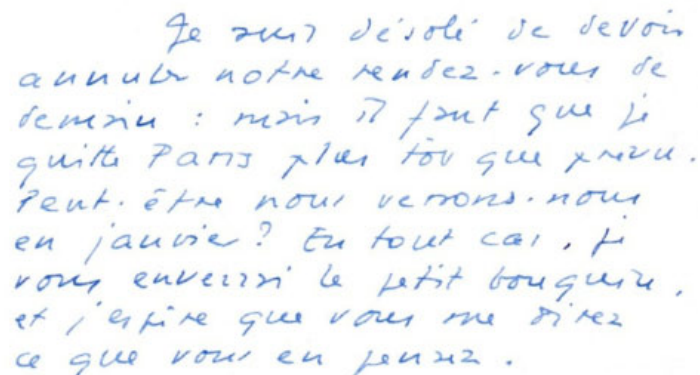 Je suis désolé de devoir
annuler notre rendez-vous de
demain : mais il faut que je
quitte Paris plus tôt que prévu.
Peut-être nous verrons-nous
en janvier ? En tout cas, je
vous enverrai le petit bouquin,
et j'espère que vous me direz
ce que vous en pensez.